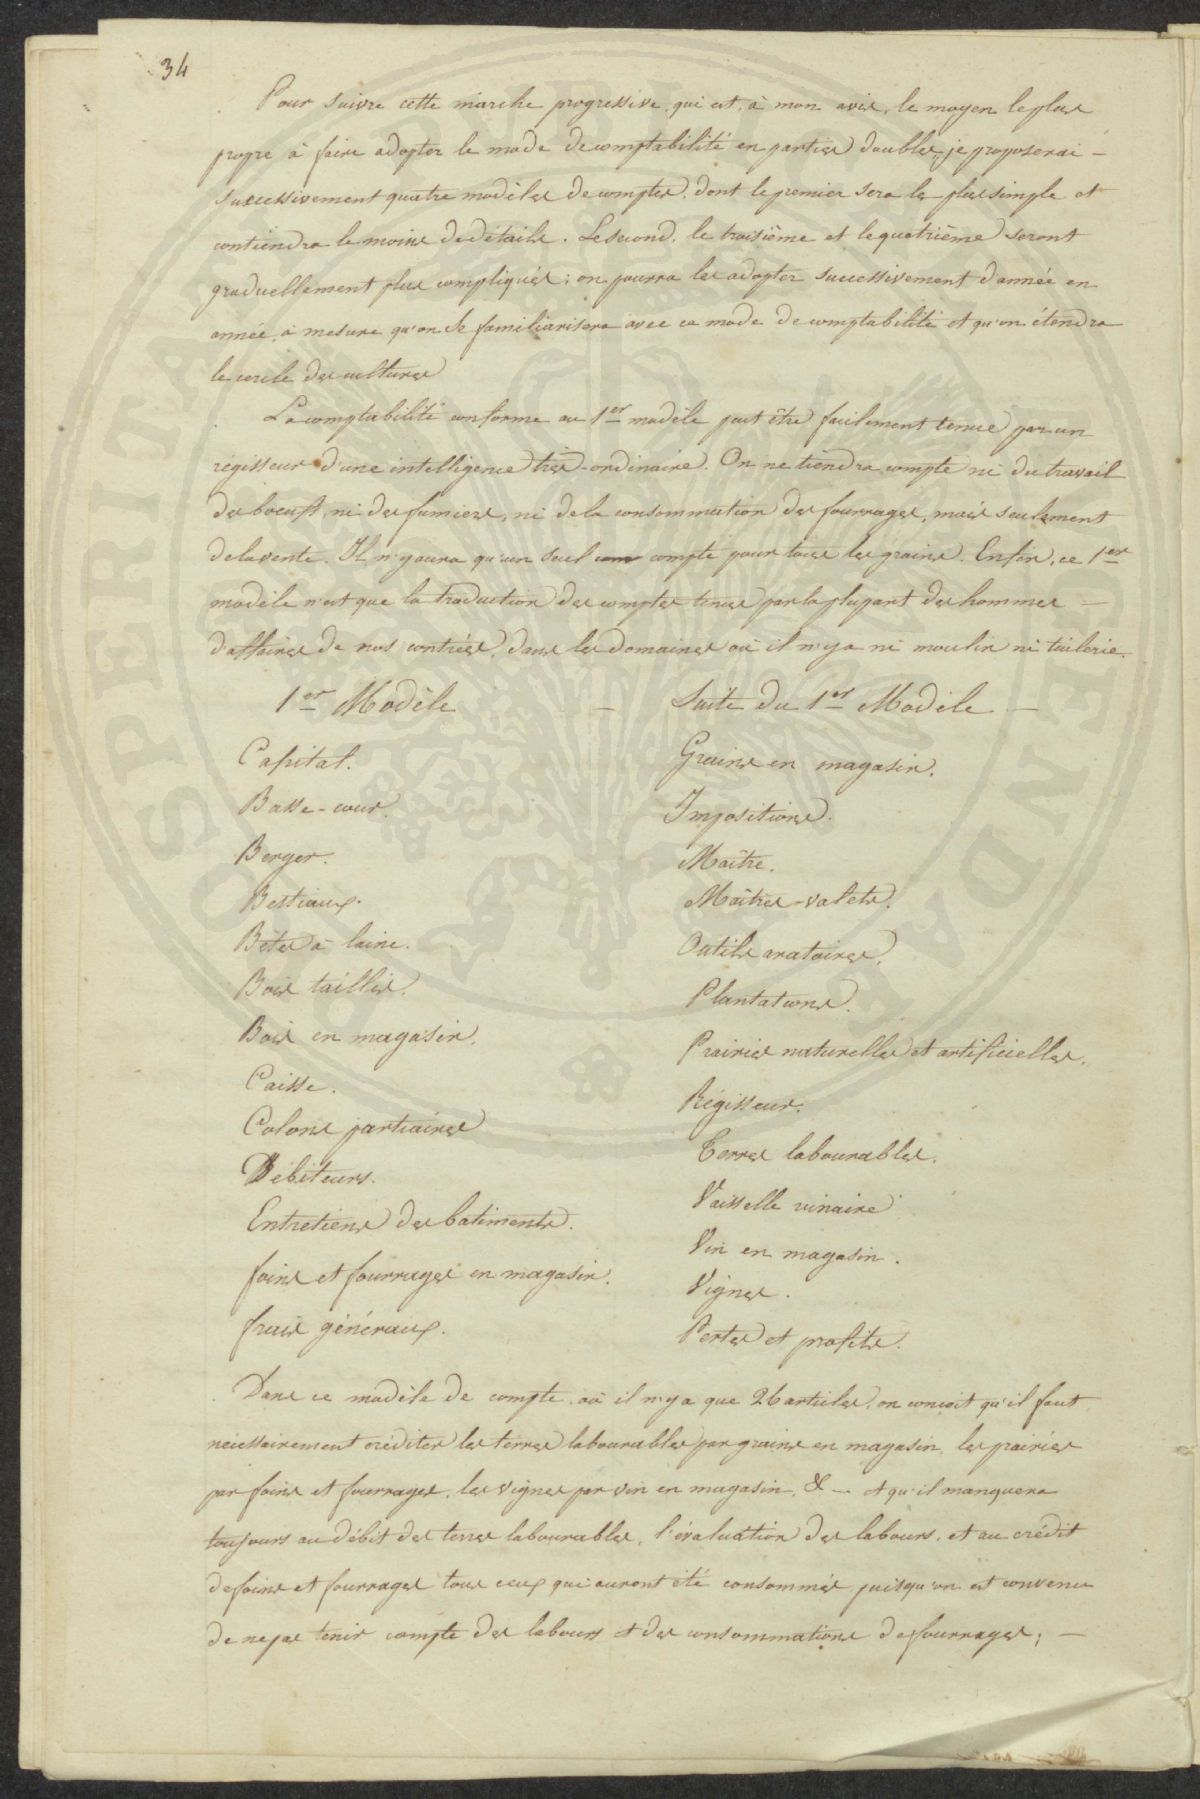 34
Pour suivre cette marche progressive, qui est, à mon avis, le moyen le plus
propre à faire adopter le mode de comptabilité en parties doubles, je proposerai —
successivement quatre modèles de comptes, dont le premier sera le plus simple et
contiendra le moins de détails. Le second, le troisième et le quatrième seront
graduellement plus compliqués ; on pourra les adopter successivement d'année en
année, à mesure qu'on se familiarisera avec ce mode de comptabilité et qu'on étendra
le cercle des cultures
La comptabilité conforme au 1er modèle peut être facilement tenue par un
régisseur d'une intelligence très-ordinaire. On ne tiendra compte ni du travail
des boeufs, ni des fumiers, ni de la consommation des fourrages, mais seulement
de la vente. Il n'y aura qu'un seul compte pour tous les grains. Enfin, ce 1er
modèle n'est que la traduction des comptes tenus par la plupart des hommes —
d'affaires de nos contrées, dans les domaines où il n'y a ni moulin ni tuilerie.
1er Modèle —
Capital.
Basse-cour.
Berger.
Bestiaux.
Bêtes à laine.
Bois taillis.
Bois en magasin.
Caisse.
Colons partiaires
Débiteurs.
Entretiens des batiments.
foins et fourrages en magasin.
frais généraux.
Suite du 1er Modèle —
Grains en magasin.
Impositions.
Maître.
Maîtres-valets.
Outils aratoires.
Plantations.
Prairies naturelles et artificielles.
Régisseur.
Terres labourables.
Vaisselle vinaire
Vin en magasin.
Vignes.
Pertes et profits.
Dans ce modèle de compte, où il n'y a que 26 articles, on conçoit qu'il faut
nécessairement créditer les terres labourables par grains en magasin, les prairies
par foins et fourrages, les vignes par vin en magasin, & — et qu'il manquera
toujours au débit des terres labourables, l'évaluation des labours, et au crédit
de foins et fourrages tous ceux qui auront été consommés puisqu'on est convenu
de ne pas tenir compte des labours et des consommations de fourrages ; —
PROSPERITAS PUBLICA